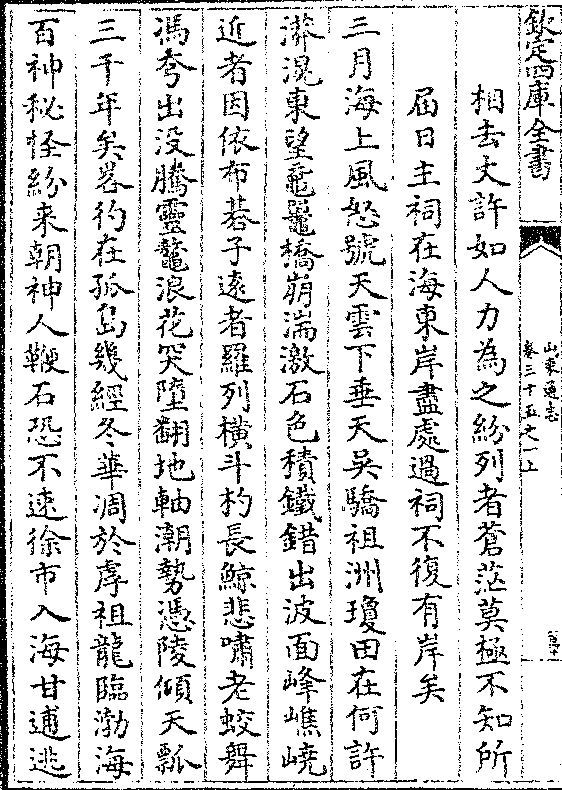 欽定四庫全書
山東通志
卷三十五之一上
相去丈許如人力為之紛列者蒼茫莫極不知所
屆日主祠在海東岸盡處過祠不復有岸矣
三月海上風怒號天雲下垂天吳驕祖洲瓊田在何許
漭滉東望黿鼉橋崩湍激石色積鐵錯出波面峰嶕嶢
近者因依布碁子遠者羅列横斗杓長鯨悲嘯老蛟舞
馮夸出没騰靈鼇浪花突墮翻地軸潮勢憑陵傾天瓢
三千年矣畧彴在孤島幾經冬華凋於虖祖龍臨渤海
百神秘怪紛来朝神人鞭石恐不速徐市入海甘逋逃